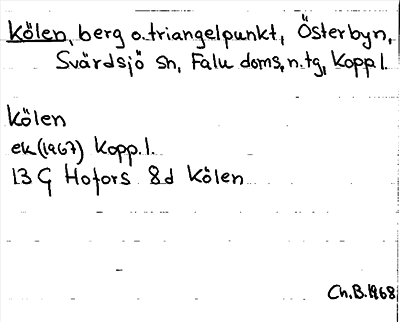 Kölen, berg o. triangelpunkt, Österbyn,
Svärdsjö sn, Falu doms. n. tg, Kopp l.
Kölen
ek (1967) Kopp. l.
13 G Hofors 8d Kölen
Ch. B. 1968